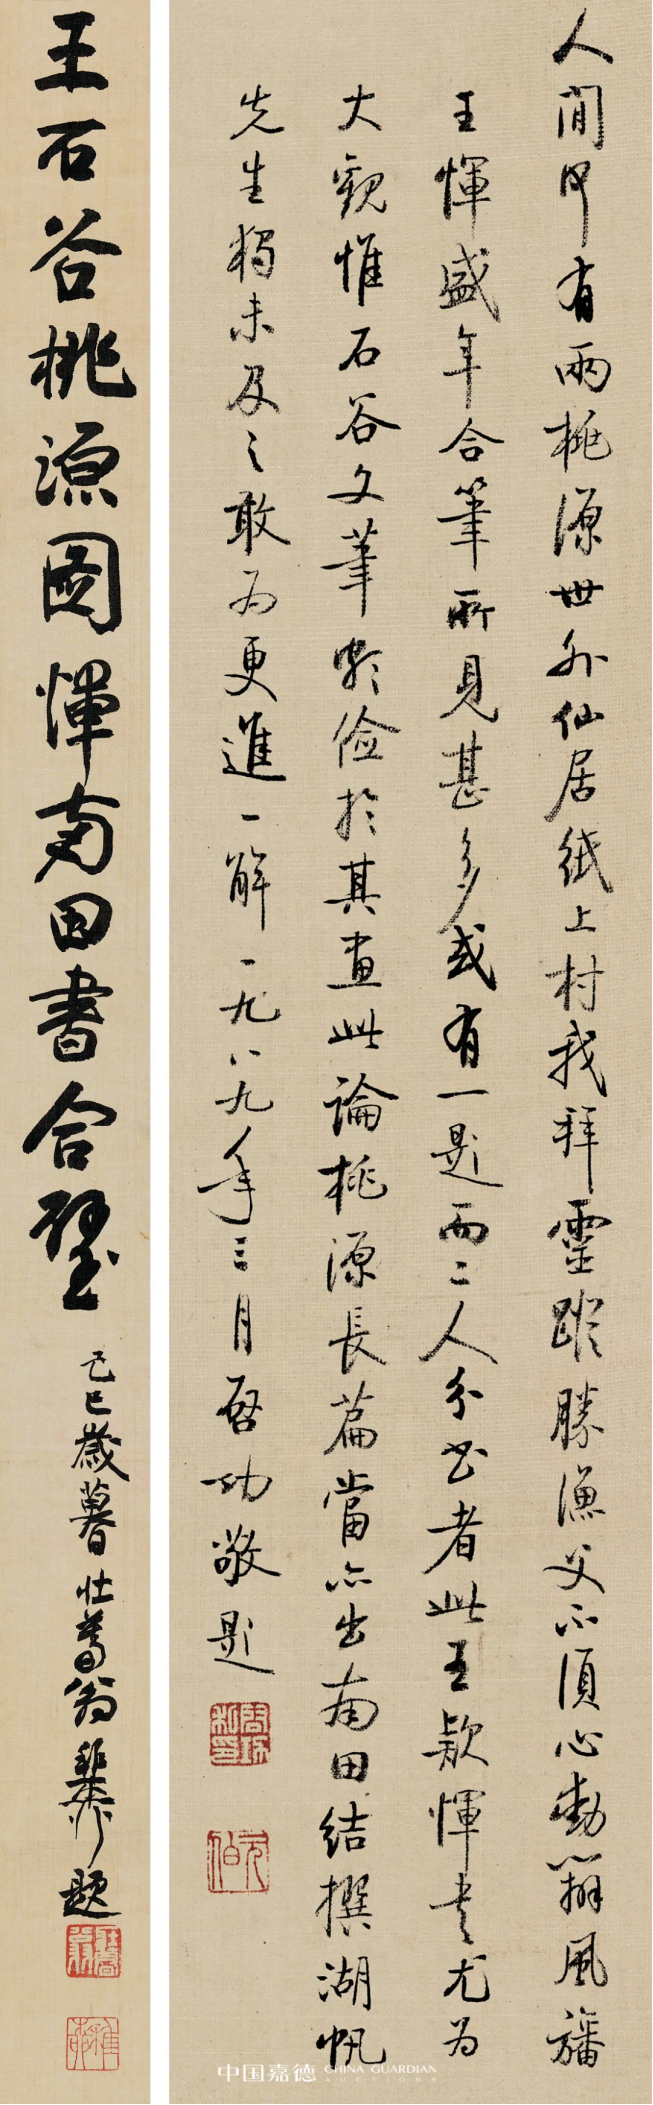 人間何有兩桃源世外仙居紙上村我拜靈蹤勝漁父不須心動辯風旛
王惲盛年合筆所見甚多或有一題而二人分書者此王款惲書尤為
大觀惟石谷文筆頗儉於其畫此論桃源長篇當亦出南田結撰湖帆
先生獨未及之敢為更進一解一九八九年三月啓功敬題
啓功
元伯
王石谷桃源圖惲南田書合璧
己巳歲暮壯暮翁稚題
壯暮翁
中国嘉德 CHINA GUARDIAN
AUCTIONS